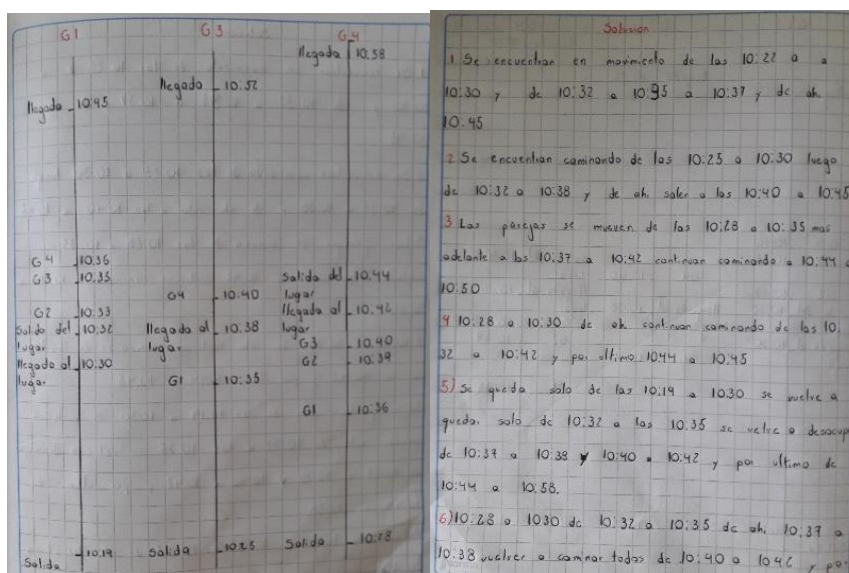 G1
llegada 10:45
G4 10:36
G3 10:35
G2 10:33
Salida del lugar 10:32
llegada al lugar 10:30
Salida 10:19
G3
llegada 10:52
G4 10:40
llegada al lugar 10:38
G1 10:35
Salida 10:25
G4
llegada 10:58
Salida del lugar 10:44
llegada al lugar 10:42
G3 10:40
G2 10:39
G1 10:36
Salida 10:28
Solusion
1 Se encuentran en movimiento de las 10:22 a a
10:30 y de 10:32 a 10:35 a 10:37 y de ahi
10:45
2 Se encuentran caminando de las 10:25 a 10:30 luego
de 10:32 a 10:38 y de ahi salen a las 10:40 a 10:45
3 Las parejas se mueven de las 10:28 a 10:35 mas
adelante a las 10:37 a 10:42 continuan caminando a 10:44 a
10:50
4 10:28 a 10:30 de ahi continuan caminando de las 10:
32 a 10:42 y por ultimo 10:44 a 10:45
5) Se queda solo de las 10:19 a 10:30 se vuelve a
quedar solo de 10:32 a las 10:35 se velve a desocup
de 10:37 a 10:38 y 10:40 a 10:42 y por ultimo de
10:44 a 10:58.
6) 10:28 a 1030 de 10:32 a 10:35 de ahi 10:37 a
10:38 vuelven a caminar todas de 10:40 a 1042 y por